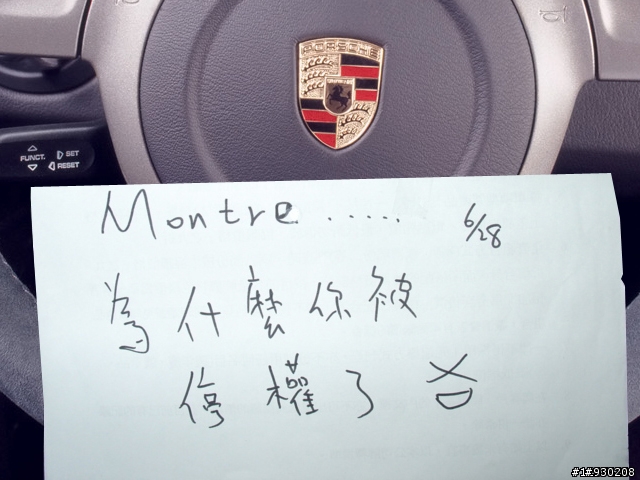 PORSCHE
FUNCT.
SET
RESET
Montre ..... 6/28
為什麼你被
停權了
#1#930208